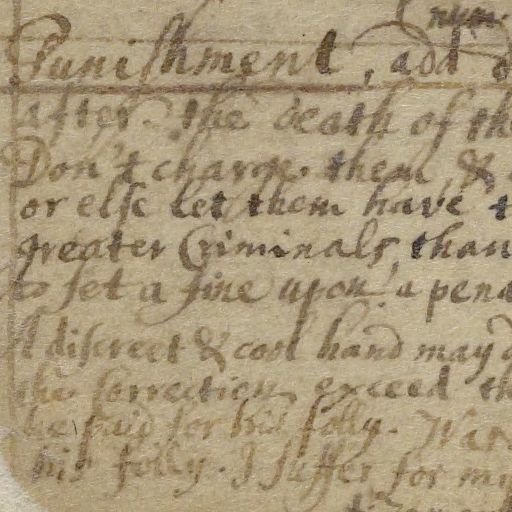 Punishment, add
after. the death of th
Don't charge. them, &
or else let them have t
greater Criminals, than
to set a fine upon a pena
A discreet & cool hand may d
the Correction exceed th
he paid for his folly. Was
his folly. I suffer for my